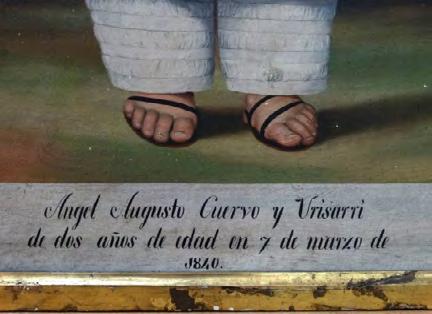 Angel Augusto Cuervo y Urisarri
de dos años de edad en 7 de marzo de
1840.